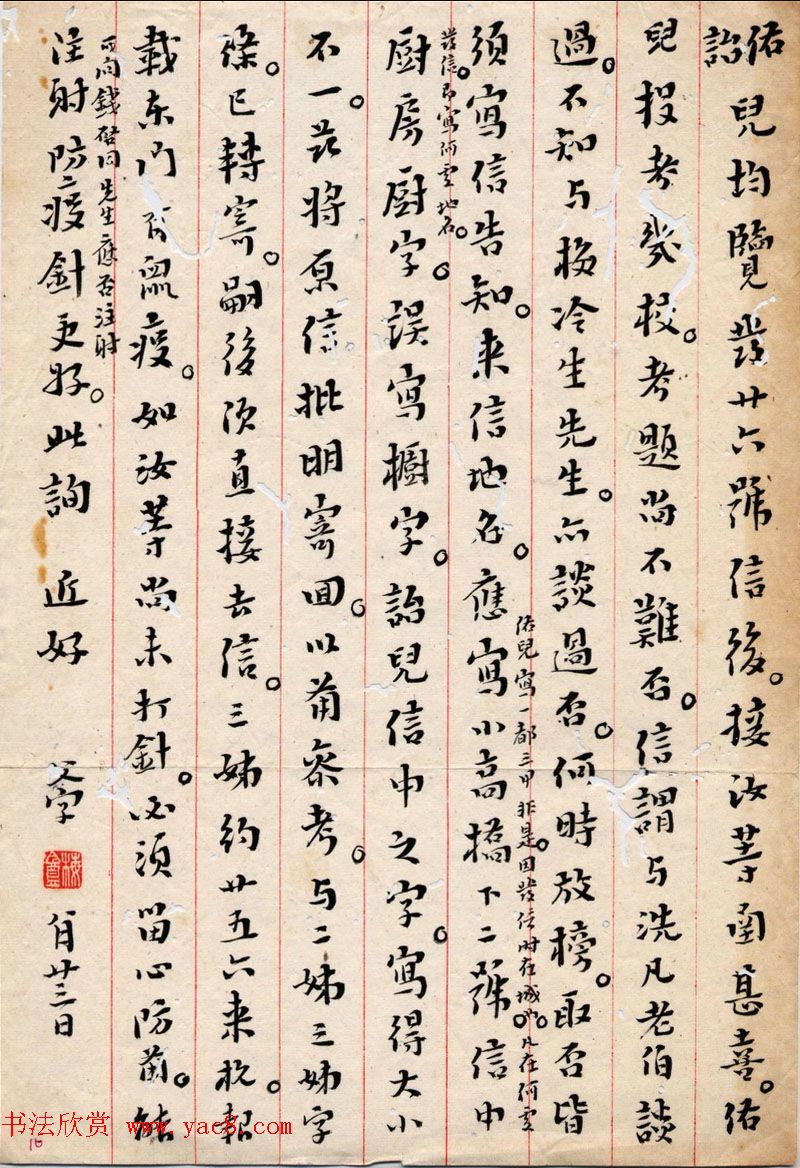 佑詒兒均覽發廿六號信後。接汝等函甚喜。佑
兒投考幾校。考題尚不難否。信謂与洗凡老伯談
過。不知与梅冷生先生。亦談過否。何時放榜。取否皆
須寫信告知。来信地名。應寫小高橋下二號。信中
佑兒寫一都三甲非是。因發信時在城也。凡在何處
發信。即寫何處地名。
厨房厨字。誤寫櫥字。詒兒信中之字。寫得大小
不一。茲將原信批明寄回。以備參考。与二姊三姊字
條。已轉寄。嗣後須直接去信。三姊約廿五六来杭。報
載东门有瘟疫。如汝等尚未打針。必須留心防範。能
注射防疫針更好。此詢 近好
可向錢 同先生應否注射
父字
梅
月廿三日
书法欣赏 www.yac8.com